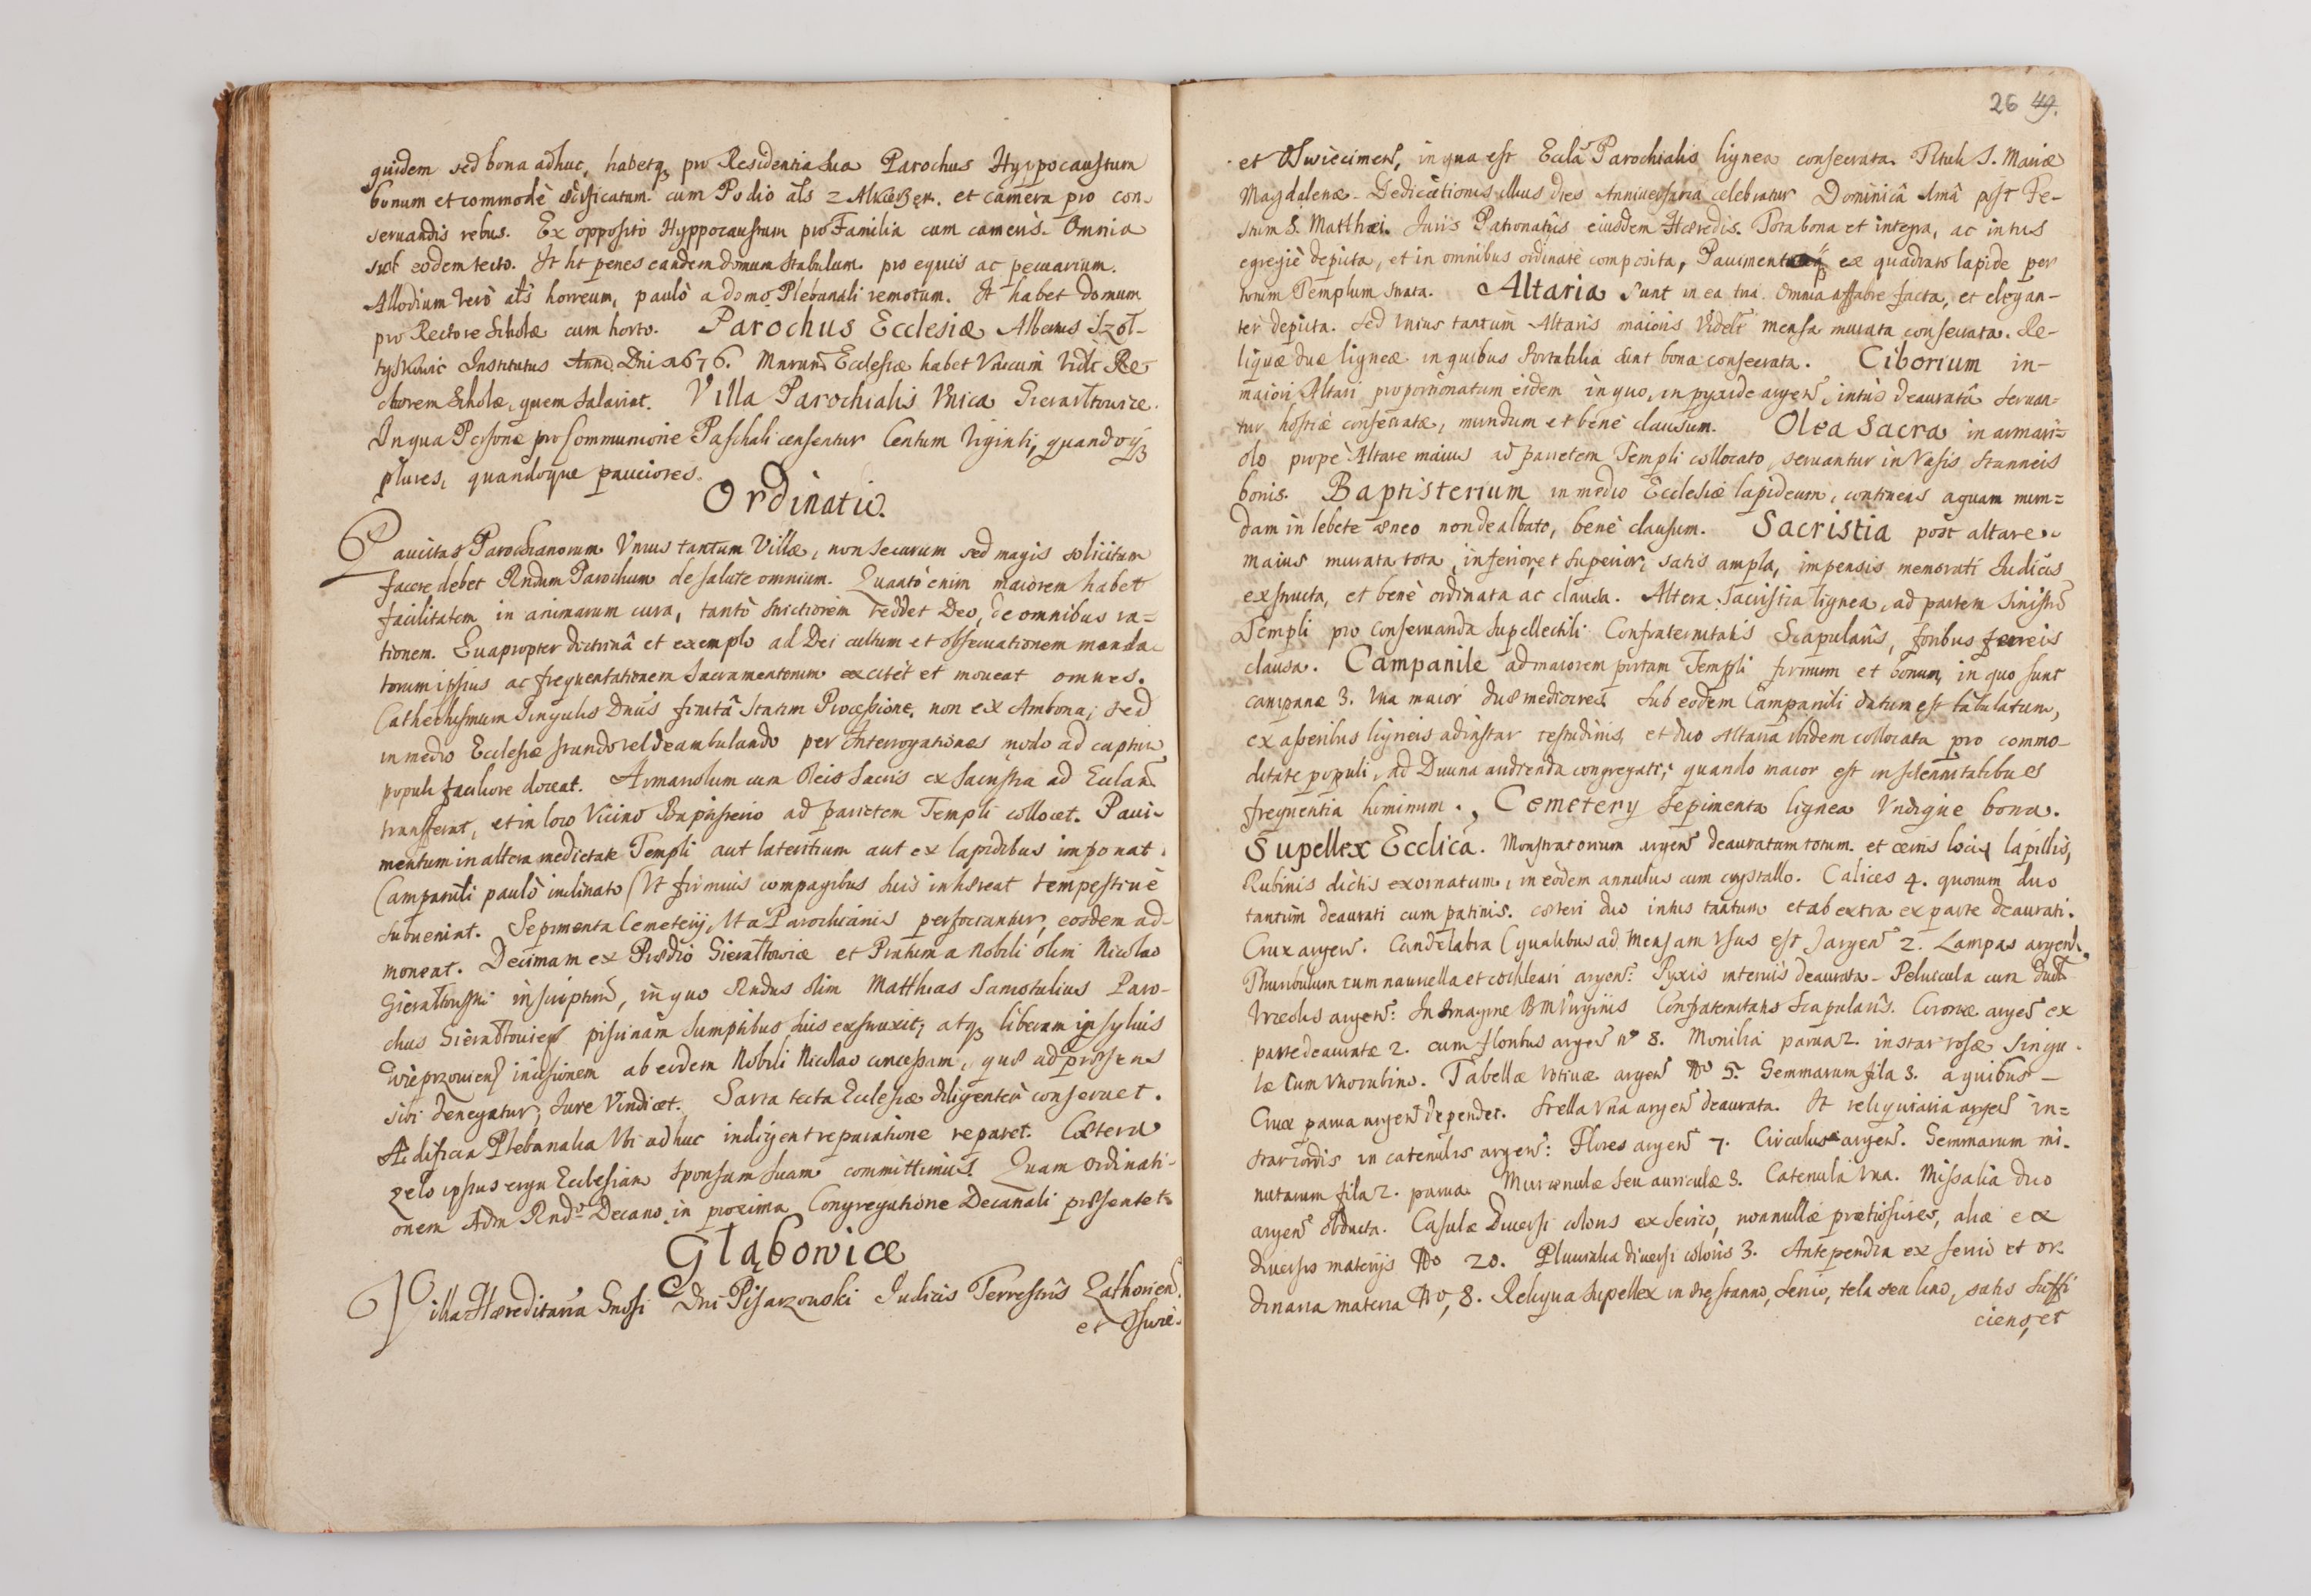 quidem sed bona adhuc, habetq, pro Residentia sua Parochus Hyppocaustum
bonum et commodè ædificatum cum Podio als z Alkierzẹm. et camera pro con-
seruandis rebus. Ex opposito Hyppocaustum pro Familia cum cameris. Omnia
sub eodem tecto. It ht penes eandem domum stabulum pro equis ac pecuarium.
Allodium verò als horreum, paulò a domo Plebanali remotum. It habet domum
pro Rectore Scholæ cum horto. Parochus Ecclesiæ Albertus Szoł-
tyskowic Institutus Anno Dni 1676. Ecclesiæ habet Vnicum Vidlt Re-
ctorem Scholæ, quem salariat. Villa Parochialis Vnica Gierałtowice.
In qua Personæ pro Communione Paschali censentur Centum Viginti, quandoq3
plures, quandoque pauciores.
Ordinatio.
Paucitas Parochianorum Vnius tantum Villæ, non securum sed magis solicitum
facere debet Rndum Parochum de salute omnium. Quantò enim maiorem habet
facilitatem in animarum cura, tantò strictiorem reddet Deo, de omnibus ra=
tionem. Euapropter doctrinâ et exemplo ad Dei cultum et obseruationem manda-
torum ipsius ac frequentationem Sacramentorum excitet et moueat omnes.
Cathechismum Singulis Dnis finitâ statim Processione, non ex Ambona, sed
in medio Ecclesiæ stando vel deambulando per Interrogationes modo ad captum
populi faciliore doceat. Armariolum cum Oleis Sacris ex Sacristia ad Ecclam
transferat, et in loco Vicino Baptisterio ad parietem Templi collocet. Paui-
mentum in altera medietate Templi aut lateritium aut ex lapidibus imponat.
Campanili paulò inclinato (Vt firmius compagibus suis inhæreat tempestiuè
subueniat. Sepimenta Cemeterij, Vt a Parochianis perficiantur, eosdem ad-
moneat. Decimam ex Prædio Gierałtowice et Pratum a Nobili olim Nicolao
Gierałtowski inscriptum, in quo Rndus olim Matthias Samotulius Paro-
chus Gierałtouien piscinam sumptibus suis exstruxit, atq3 liberam in syluis
Wieprzouien incisionem ab eodem Nobili Nicolao concessam, quæ ad præsens
sibi denegatur, Jure Vindicet. Sarta tecta Ecclesiæ diligenter conseruet.
Ædificia Plebanalia Vbi adhuc indigent reparatione reparet. Cætera
zelo ipsius erga Ecclesiam Sponsam suam committimus. Quam Ordinati-
onem Adm Rndo Decano in proxima Congregatione Decanali præsentet.
Głąbowice
Villa Hæreditaria Gnosi Dni Pisarzouski Judicis Terrestris Zathorien
et Oswie-
26 49.
et Oswiecimen, in qua est Eccla Parochialis lignea consecrata. Tituli S. Mariæ
Magdalenæ. Dedicationis illius dies Anniuersaria celebratur Dominicâ imâ post Fe-
stum S. Matthæi. Juris Patronatûs eiusdem Hæredis. Tota bona et integra, ac intus
egregiè depicta, et in omnibus ordinatè composita, Pauiment ex quadrato lapide per
totum Templum strata. Altaria sunt in ea tria omnia affabrè facta, et elegan-
ter depicta. Sed Vnius tantum Altaris maioris Videlt mensa murata consecrata. Re-
liquæ duæ ligneæ in quibus Portatilia sunt bona consecrata. Ciborium in-
maiori Altari proportionatum eidem in quo, in pyxide argen, intùs deauratâ seruan-
tur hostiæ consecratæ, mundum et benè clausum. Olea Sacra in armari=
olo propè Altare maius ad parietem Templi collocato, seruantur in Vasis stanneis
bonis. Baptisterium in medio Ecclesiæ lapideum, continens aquam mun=
dam in lebete æneo non dealbato, benè clausum. Sacristia post altare
maius murata tota, inferior et superior, satis ampla, impensis memorati Judicis
exstructa, et benè ordinata ac clausa. Altera Sacristia lignea, ad partem Sinistr
Templi pro conseruanda supellectili Confraternitatis Scapularis, foribus ferreis
clausa. Campanile ad maiorem portam Templi firmum et bonum, in quo sunt
campanæ 3. Vna maior duæ mediocres. Sub eodem Campanili datum est tabulatum,
ex asseribus ligneis adinstar testudinis, et duo Altaria ibidem collocata pro commo-
ditate populi, ad Diuina audienda congregati, quando maior est in solennitatibus
frequentia hominum. Cemetery sepimenta lignea Vndique bona.
Supellex Ecclica. Monstratorium argen deauratum totum et certis locis lapillis,
Rubinis dictis exornatum, in eodem annulus cum crystallo. Calices 4. quorum duo
tantùm deaurati cum patinis. cæteri duo intus tantum et ab extra ex parte deaurati.
Crux argen. Candelabra (qualibus ad Mensam Vsus est) argen 2. Lampas argen.
Thuribulum cum nauicella et cochleari argen: Pyxis interius deaurata. Peluicula cum duob
Vrceolis argen: In Imagine B M Virginis Confraternitatis Scapularis. Coronæ argen ex
parte deauratæ 2. cum floribus argen no 8. Monilia parua 2. instar rosæ singu-
læ cum Vno rubino. Tabellæ Votiuæ argen No 5. Gemmarum fila 3. a quibus
Crux parua argen dependet. Stella Vna argen deaurata. It reliquiaria argen in=
star cordis in catenulis argen: Flores argen 7. Circulus argen. Gemmarum mi-
nutarum fila 2. parua. Murenulæ seu auriculæ 3. Catenula Vna. Missalia duo
argen obducta. Casulæ Diuersi coloris ex serico, nonnullæ pretiosiores, aliæ ex
diuersis materijs No 20. Pluuialia diuersi coloris 3. Antependia ex serico et or-
dinaria materia No, 8. Reliqua supellex in stanno, serico, tela seu lino, satis suffi
ciens, et